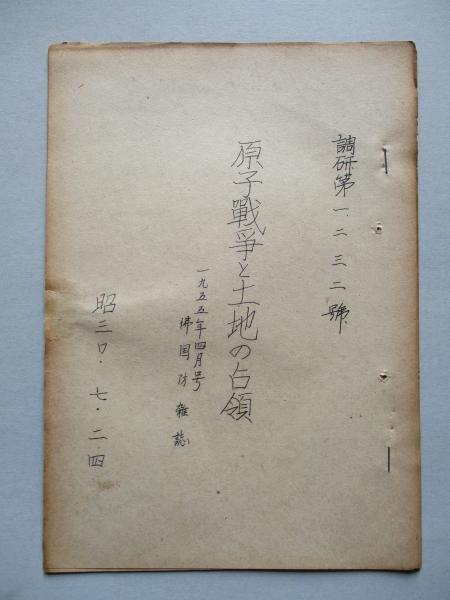 調研第一二三二號
原子戰爭と土地の占領
一九五五年四月号
佛国防雜誌
昭三〇・七・二四